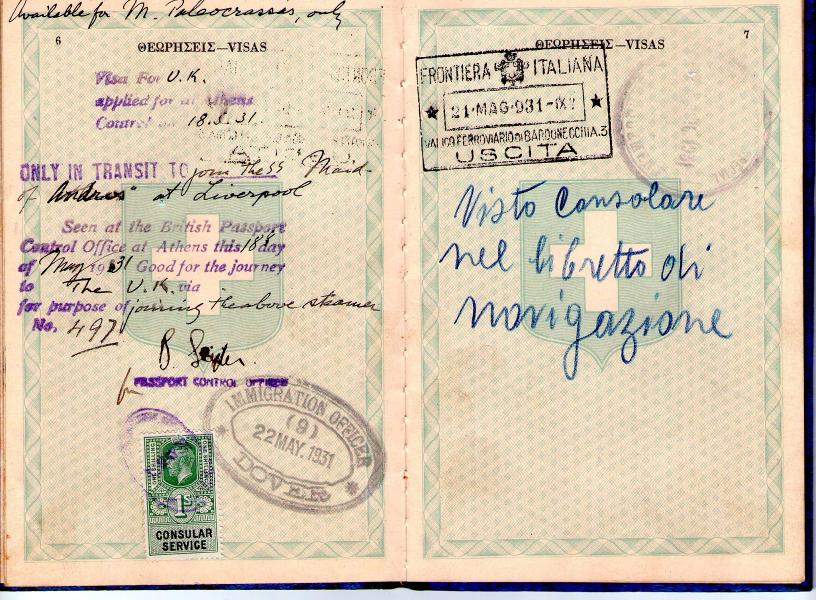 Available for M. Paleocrassas, only
6
ΘΕΩΡΗΣΕΙΣ—VISAS
Visa For U.K.
applied for at Athens
Control on 18.5.31.
ONLY IN TRANSIT TO join the SS "Maid-
of Andros" at Liverpool
Seen at the British Passport
Control Office at Athens this 18th day
of May 1931 Good for the journey
to The U.K. via
for purpose of joining the above steamer
No. 497
for
PASSPORT CONTROL OFFICER
IMMIGRATION OFFICER
(9)
22 MAY. 1931
DOVER
1s
CONSULAR
SERVICE
7
ΘΕΩΡΗΣΕΙΣ—VISAS
FRONTIERA ITALIANA
21·MAG·931·IX
VALICO FERROVIARIO DI BARDONECCHIA.3
USCITA
Visto Consolare
nel libretto di
navigazione